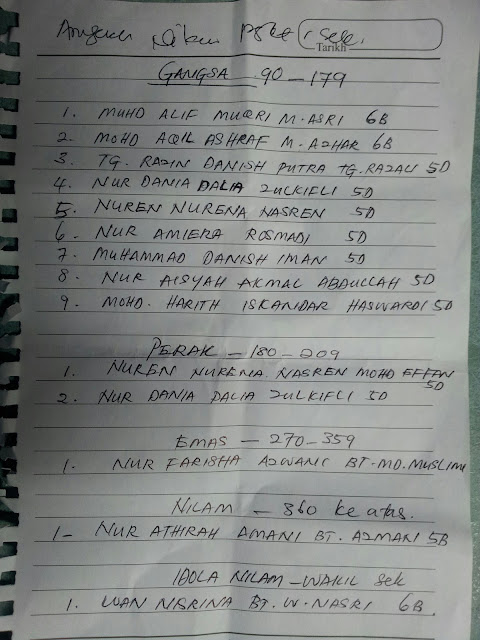 Anugerah Nilam Pske / Sek.
Tarikh
GANGSA 90 - 179
1. MUHD ALIF MUQRI M. ASRI 6B
2. MOHD AQIL ASHRAF M. AZHAR 6B
3. TG. RAZIN DANISH PUTRA TG. RAZALI 5D
4. NUR DANIA DALIA ZULKIFLI 5D
5. NUREN NURENA NASREN 5D
6. NUR AMIERA ROSMADI 5D
7. MUHAMMAD DANISH IMAN 5D
8. NUR AISYAH AKMAL ABDULLAH 5D
9. MOHD. HARITH ISKANDAR HASWARDI 5D
PERAK - 180 - 209
1. NUREN NURENA NASREN MOHD EFFAN 5D
2. NUR DANIA DALIA ZULKIFLI 5D
EMAS - 270 - 359
1. NUR FARISHA AZWANI BT. MD. MUSLIM
NILAM - 360 ke atas.
1- NUR ATHIRAH AMANI BT. AZMAN 5B
IDOLA NILAM - WAKIL Sek
1. WAN NISRINA BT. W. NASRI 6B.